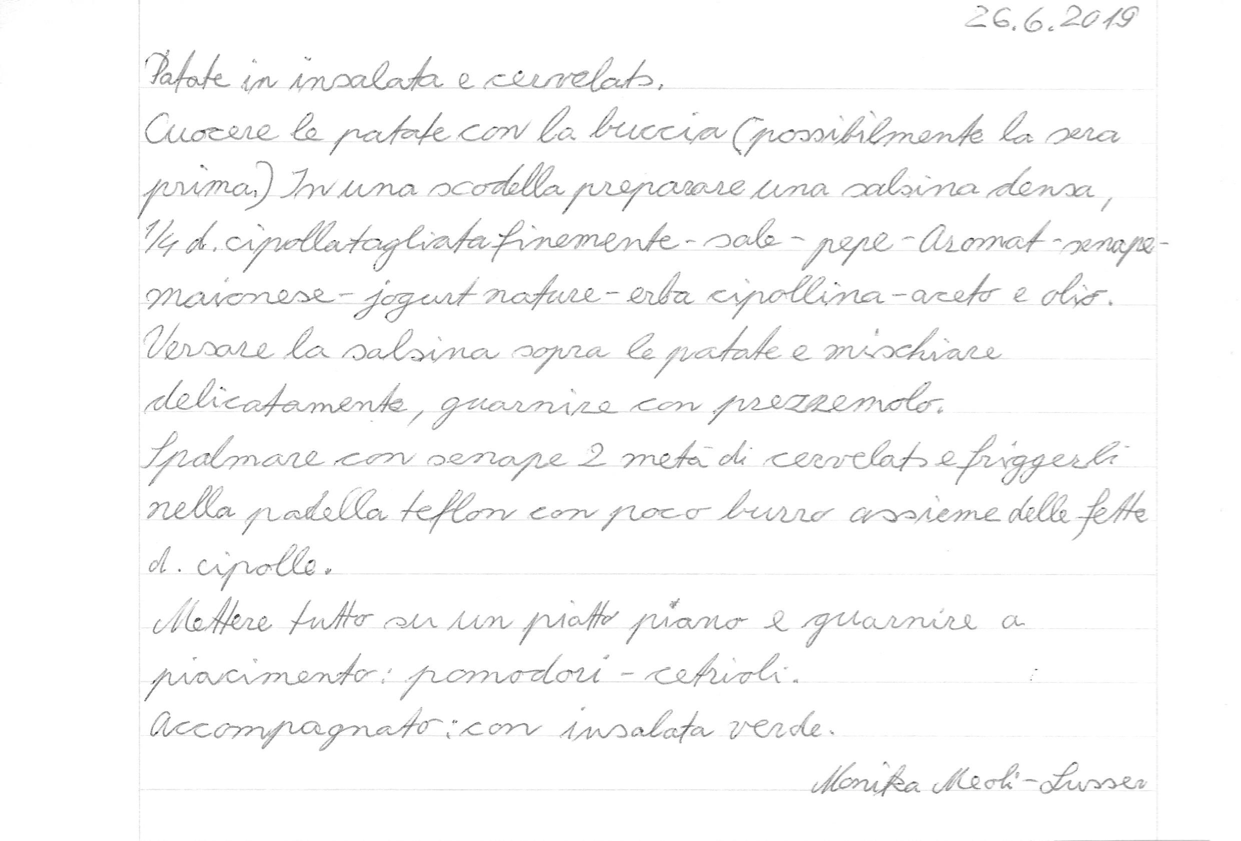 26.6.2019
Patate in insalata e cervelats.
Cuocere le patate con la buccia (possibilmente la sera
prima.) In una scodella preparare una salsina densa,
1/4 d. cipolla tagliata finemente - sale - pepe - Aromat - senape -
maionese - jogurt nature - erba cipollina - aceto e olio.
Versare la salsina sopra le patate e mischiare
delicatamente, guarnire con prezzemolo.
Spalmare con senape 2 metà di cervelats e friggerli
nella padella teflon con poco burro assieme delle fette
d. cipolle.
Mettere tutto su un piatto piano e guarnire a
piacimento: pomodori - cetrioli.
Accompagnato: con insalata verde.
Monika Meoli-Lusser